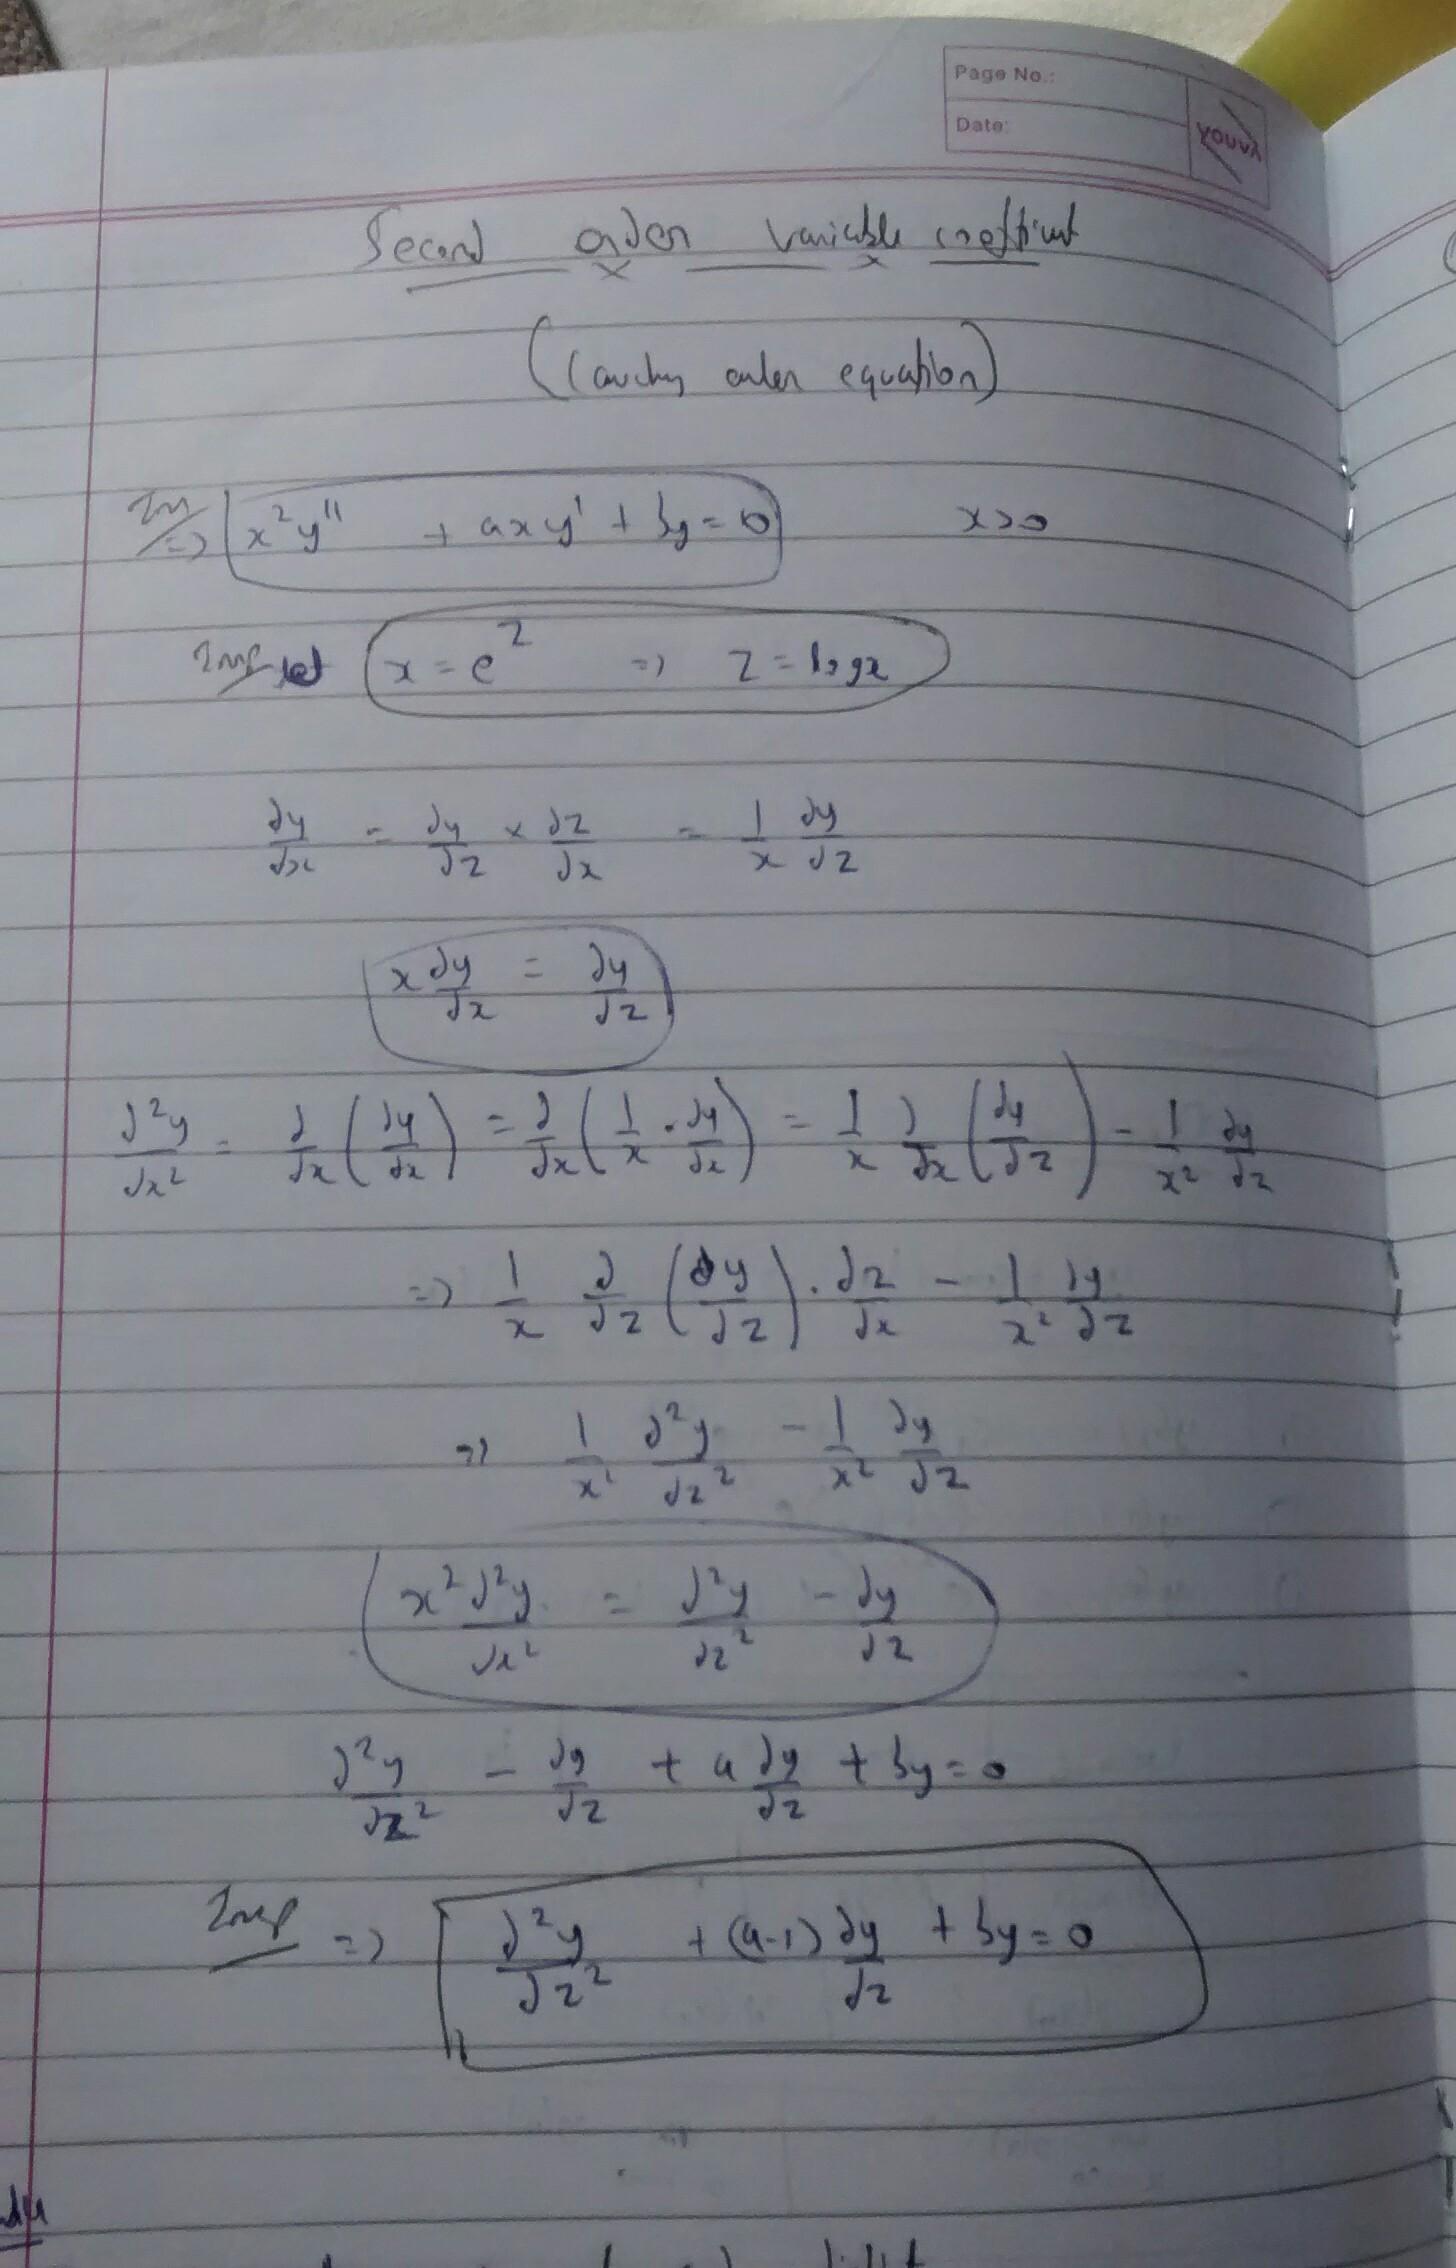 Page No.:
Date:
YOUVA
Second order variable coefficient
(Cauchy euler equation)
Im => x²y'' + axy' + by = 0 x>0
Imp let x = e^z => z = log x
dy/dx = dy/dz × dz/dx = 1/x dy/dz
x dy/dx = dy/dz
d²y/dx² = d/dx (dy/dx) = d/dx (1/x · dy/dx) = 1/x d/dx (dy/dz) - 1/x² dy/dz
=> 1/x d/dz (dy/dz) · dz/dx - 1/x² dy/dz
=> 1/x² d²y/dz² - 1/x² dy/dz
x² d²y/dx² = d²y/dz² - dy/dz
d²y/dz² - dy/dz + a dy/dz + by = 0
Imp => d²y/dz² + (a-1) dy/dz + by = 0